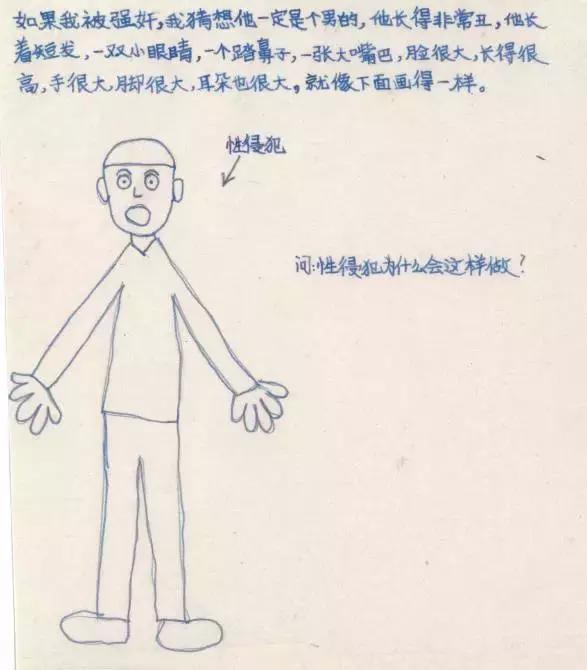 如果我被强奸,我猜想他一定是个男的,他长得非常丑,他长
着短发,一双小眼睛,一个踏鼻子,一张大嘴巴,脸很大,长得很
高,手很大,脚很大,耳朵也很大,就像下面画得一样。
性侵犯
问:性侵犯为什么会这样做?